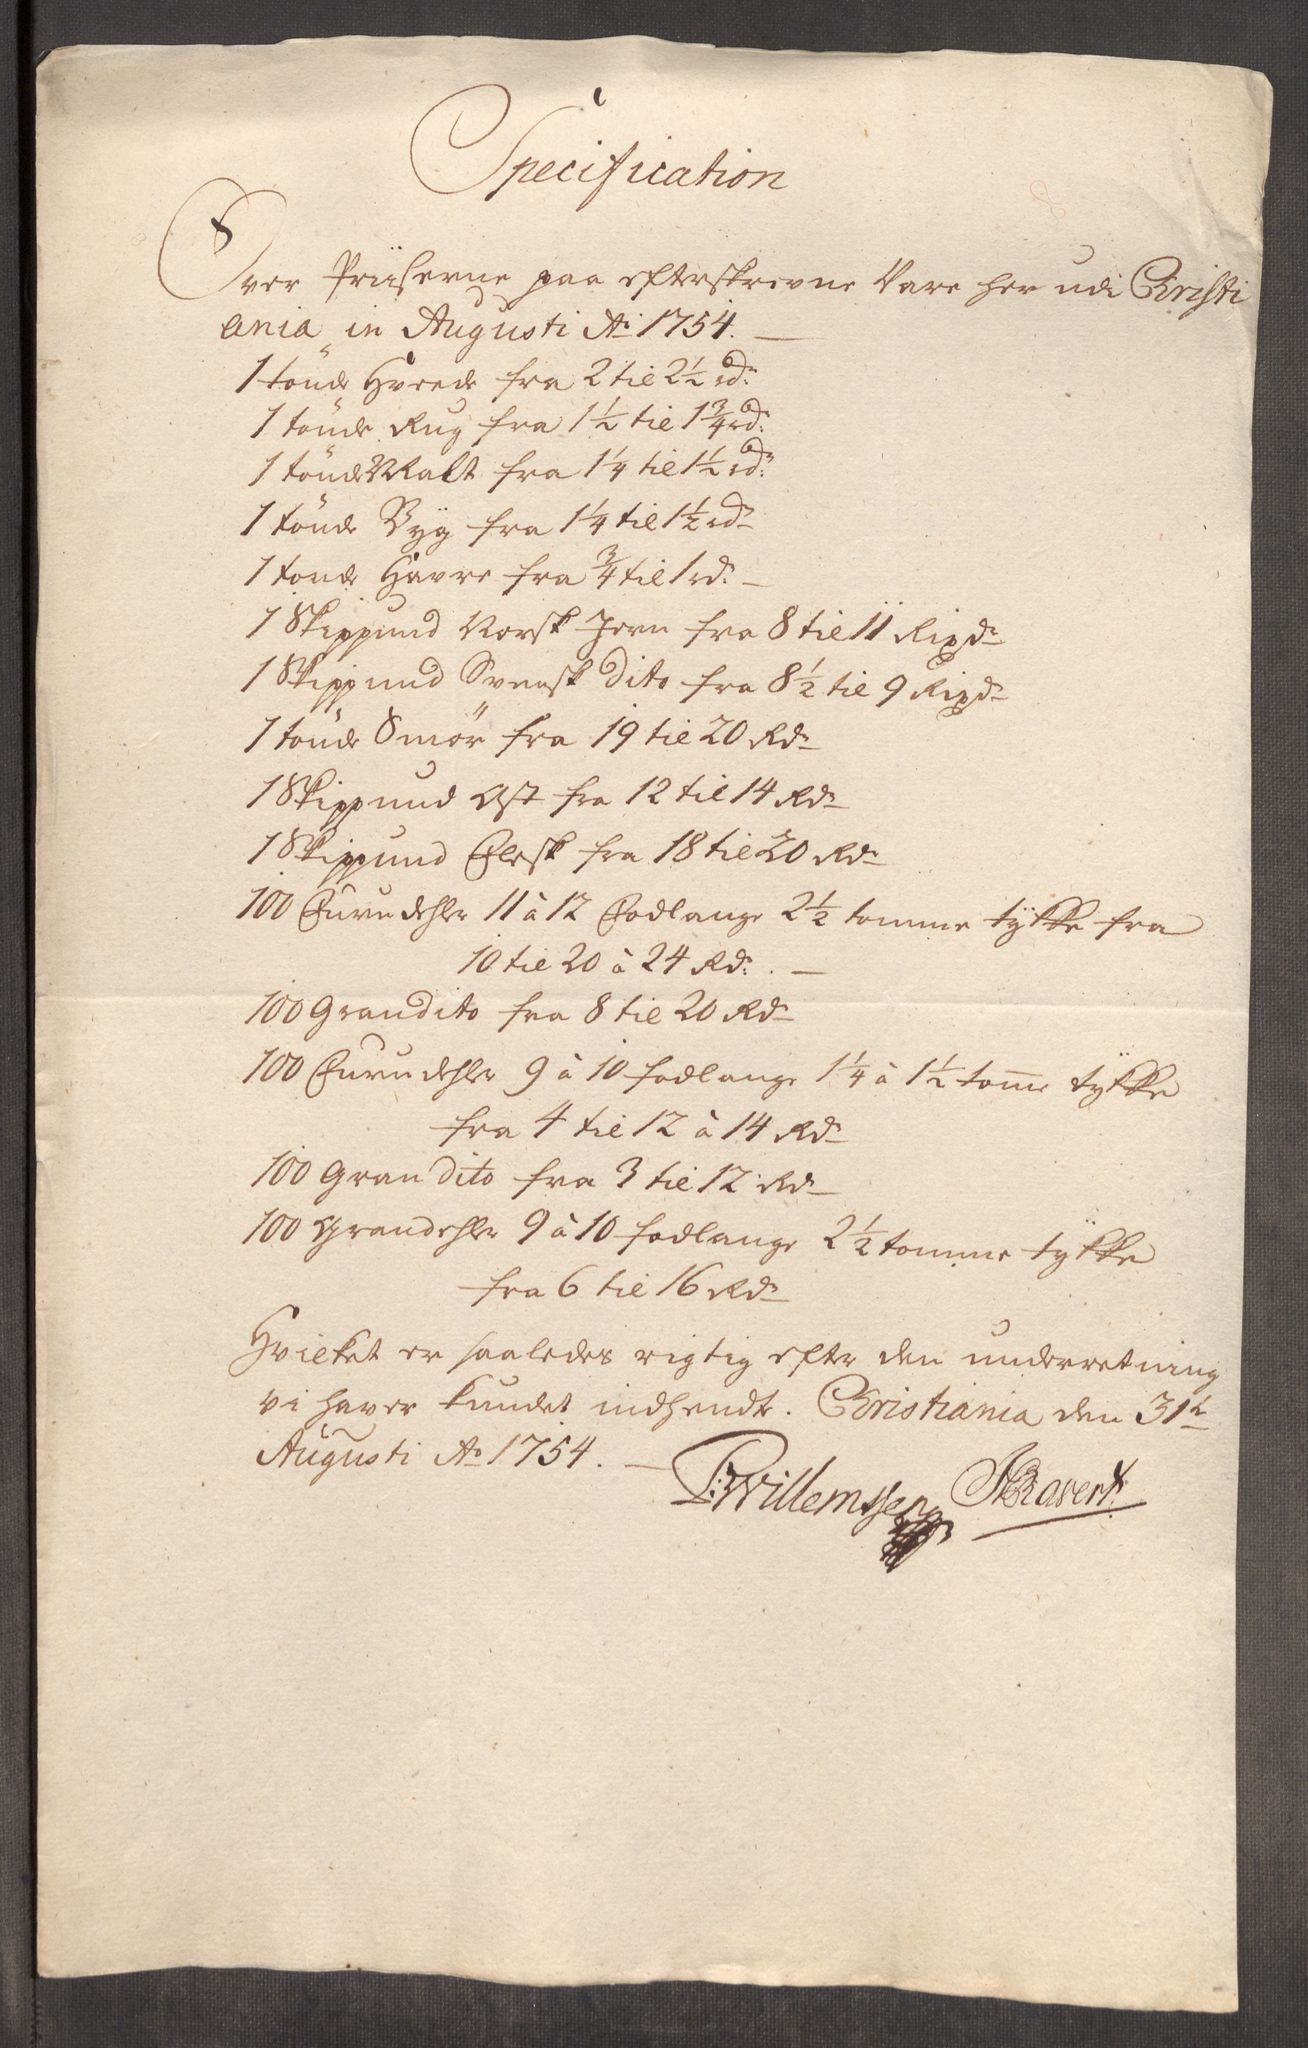 Specification
Over Priiserne paa efterskrevne Vare her udi Christi
ania in Augusti Ai 1754.
1 tönde Hvede fra 2 til 2½ rd.
1 tönde Rug fra 1½ til 1¾ rd.
1 tönde Malt fra 1¼ til 1½ rd.
1 tönde Byg fra 1¼ til 1½ rd.
1 tonde Havre fra ¾ til 1 rd.
1 Skippund Norsk Jern fra 8 til 11 Rixdr
1 Skippund Svensk dito fra 8½ til 9 Rixdr
1 tönde Smör fra 19 til 20 Rdr
1 Skippund Ost fra 12 til 14 Rdr
1 Skippund Flesk fra 18 til 20 Rdr
100 Furudehler 11 à 12 Fodlange 2½ tomme tykke fra
10 til 20 à 24 Rdr.
100 Gran dito fra 8 til 20 Rdr
100 Furudehler 9 à 10 fodlange 1¼ à 1½ tome tykke
fra 4 til 12 à 14 Rdr
100 Gran dito fra 3 til 12 Rdr
100 Grandehler 9 à 10 fodlange 2½ tomme tykke
fra 6 til 16 Rdr
Hvilket er saaledes rigtig efter den underretning
vi haver kundet indhendte. Christiania den 31te
Augusti Ao 1754.
P: Willemssen